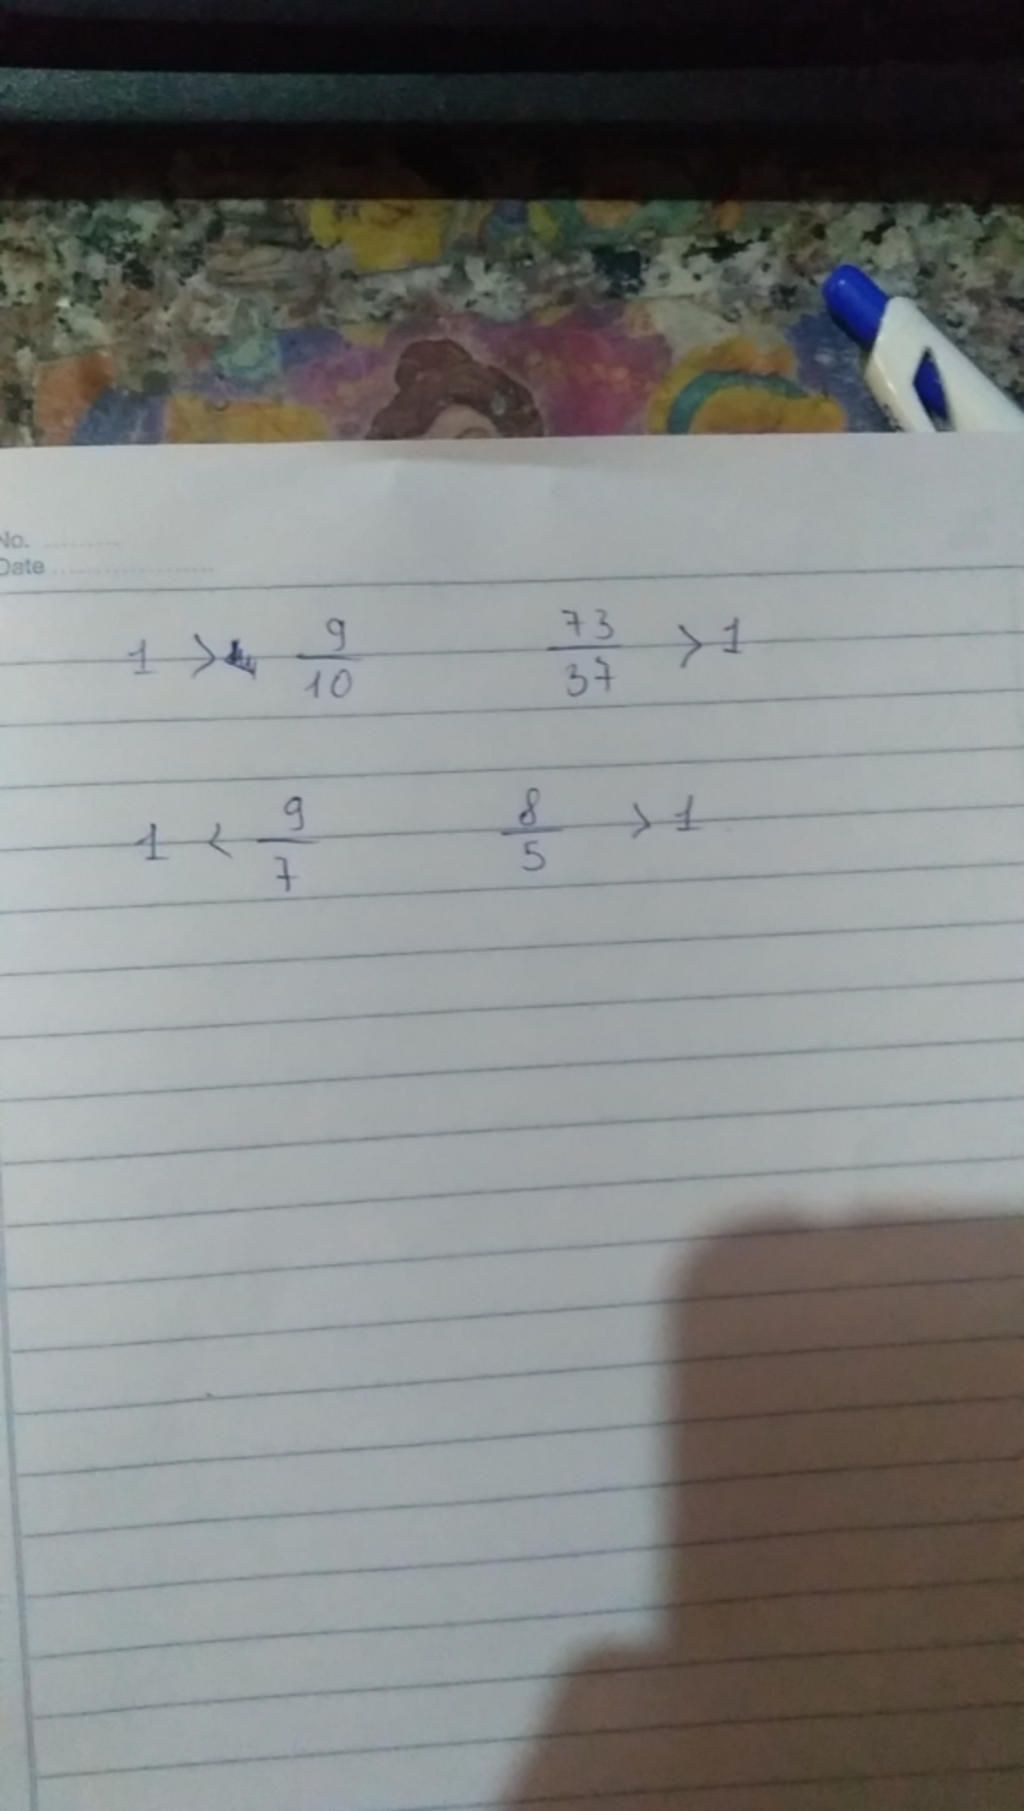 No. ..........
Date ....................
1 > 9/10 73/37 > 1
1 < 9/7 8/5 > 1